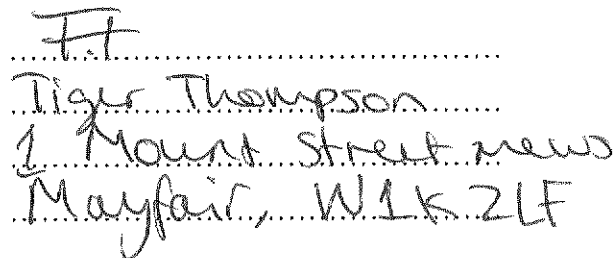 F.F
Tiger Thompson
1 Mount street mews
Mayfair, W1K 2LF